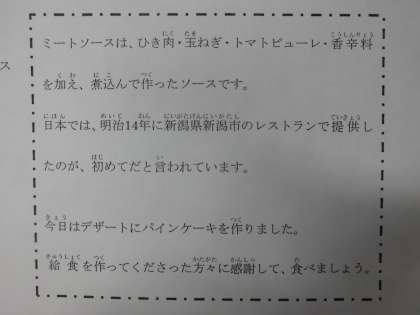 ス
ミートソースは、ひき肉・玉ねぎ・トマトピューレ・香辛料
を加え、煮込んで作ったソースです。
日本では、明治14年に新潟県新潟市のレストランで提供し
たのが、初めてだと言われています。
今日はデザートにパインケーキを作りました。
給食を作ってくださった方々に感謝して、食べましょう。